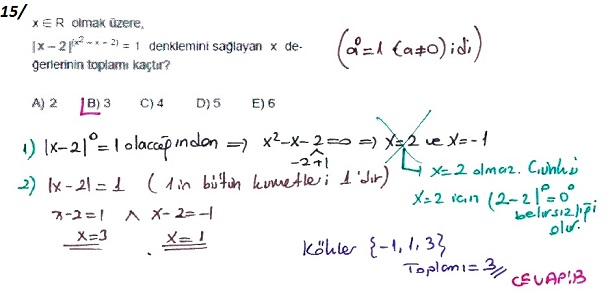 15/
x ∈ R olmak üzere,
|x – 2|^(x² – x – 2) = 1 denklemini sağlayan x de-
ğerlerinin toplamı kaçtır?
(a⁰=1 (a≠0) idi)
A) 2 B) 3 C) 4 D) 5 E) 6
1) |x-2|⁰ = 1 olacağından ⇒ x²-x-2=0 ⇒ x=2 ve x=-1
-2+1
x=2 olmaz. Çünkü
2) |x-2| = 1 (1 in bütün kuvvetleri 1'dir)
x=2 için |2-2|⁰=0⁰
x-2=1 ∧ x-2=-1
belirsizliği
olur.
x=3 x=1
Kökler {-1, 1, 3}
Toplamı = 3//
CEVAP:B